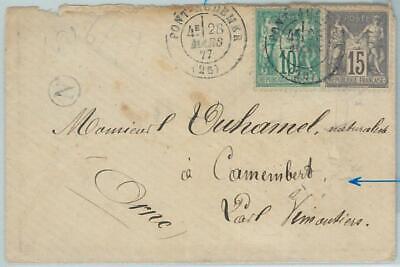 PONT-AUDEMER
4E 28
MARS
77
(26)
POSTE
10
REPUBLIQUE FRANCAISE
POSTE
15
REPUBLIQUE FRANCAISE
N
Monsieur Duhamel, naturaliste
à Camembert,
Par Vimoutiers.
Orne